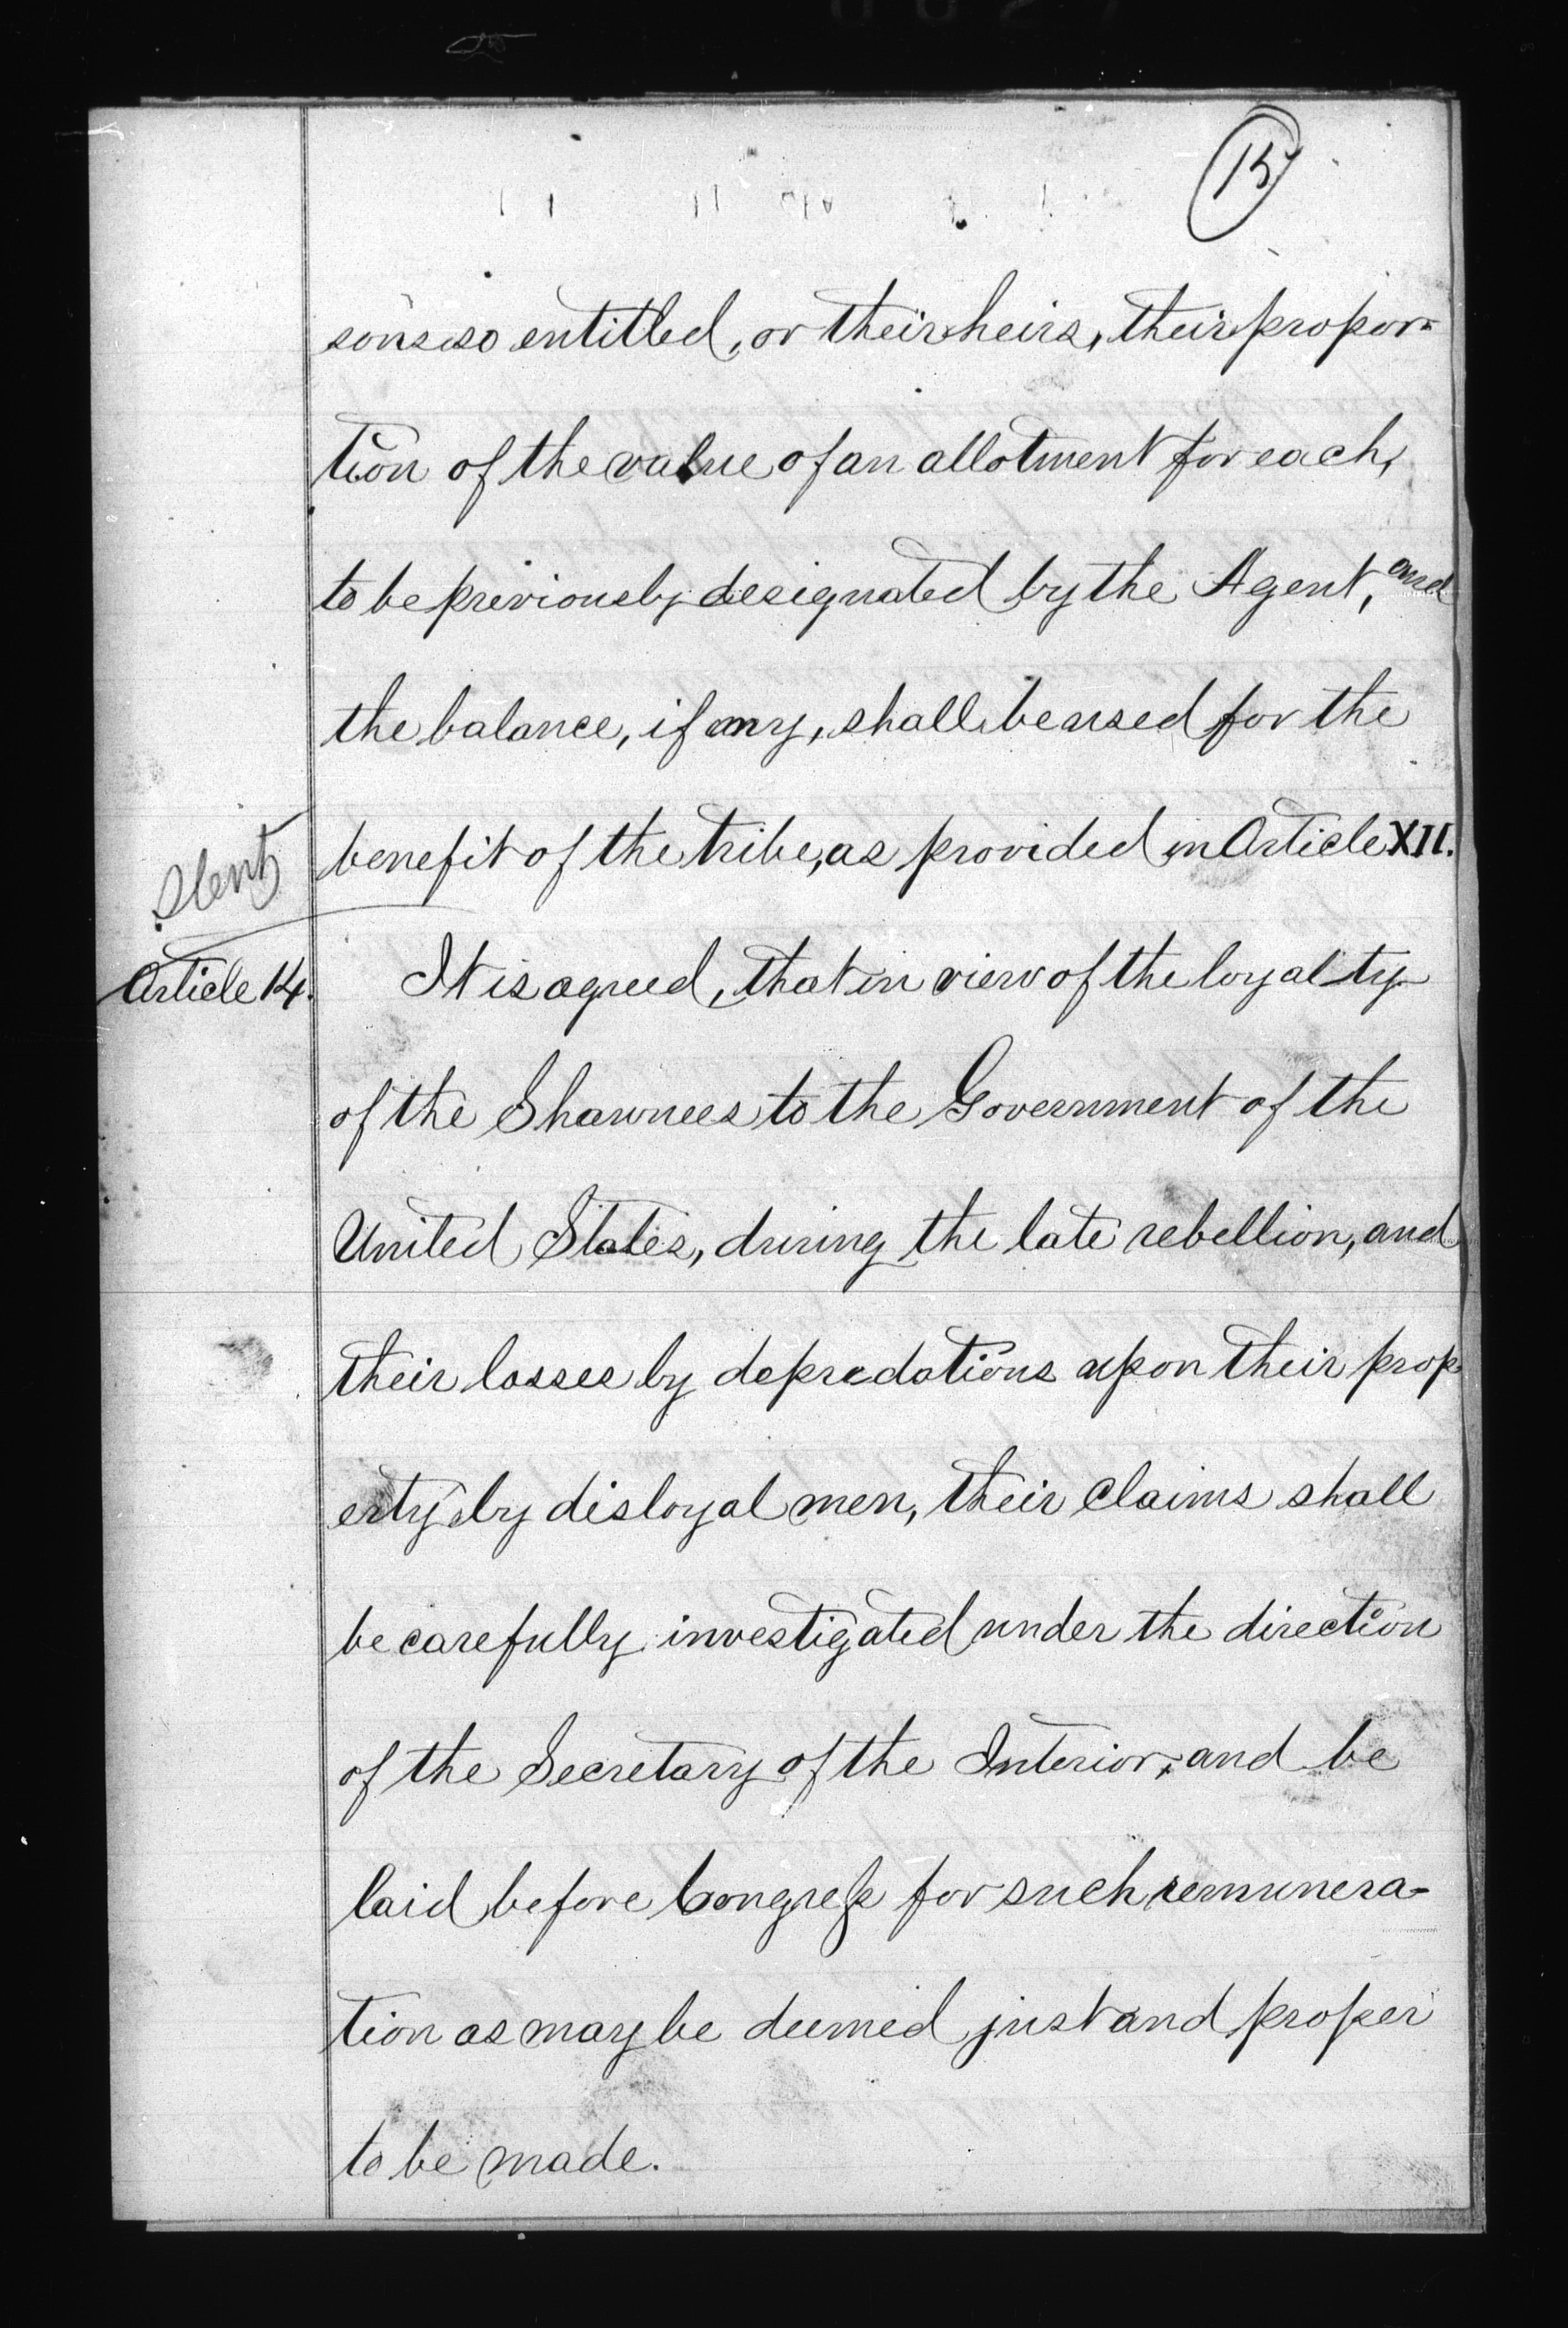 15
sons so entitled, or their heirs, their propor-
tion of the value of an allotment for each,
to be previously designated by the Agent, and
the balance, if any, shall be used for the
benefit of the tribe, as provided in Article XII.
Article 14. It is agreed, that in view of the loyalty
of the Shawnees to the Government of the
United States, during the late rebellion, and
their losses by depredations upon their prop-
erty by disloyal men, their claims shall
be carefully investigated under the direction
of the Secretary of the Interior, and be
laid before Congress for such remunera-
tion as may be deemed just and proper
to be made.